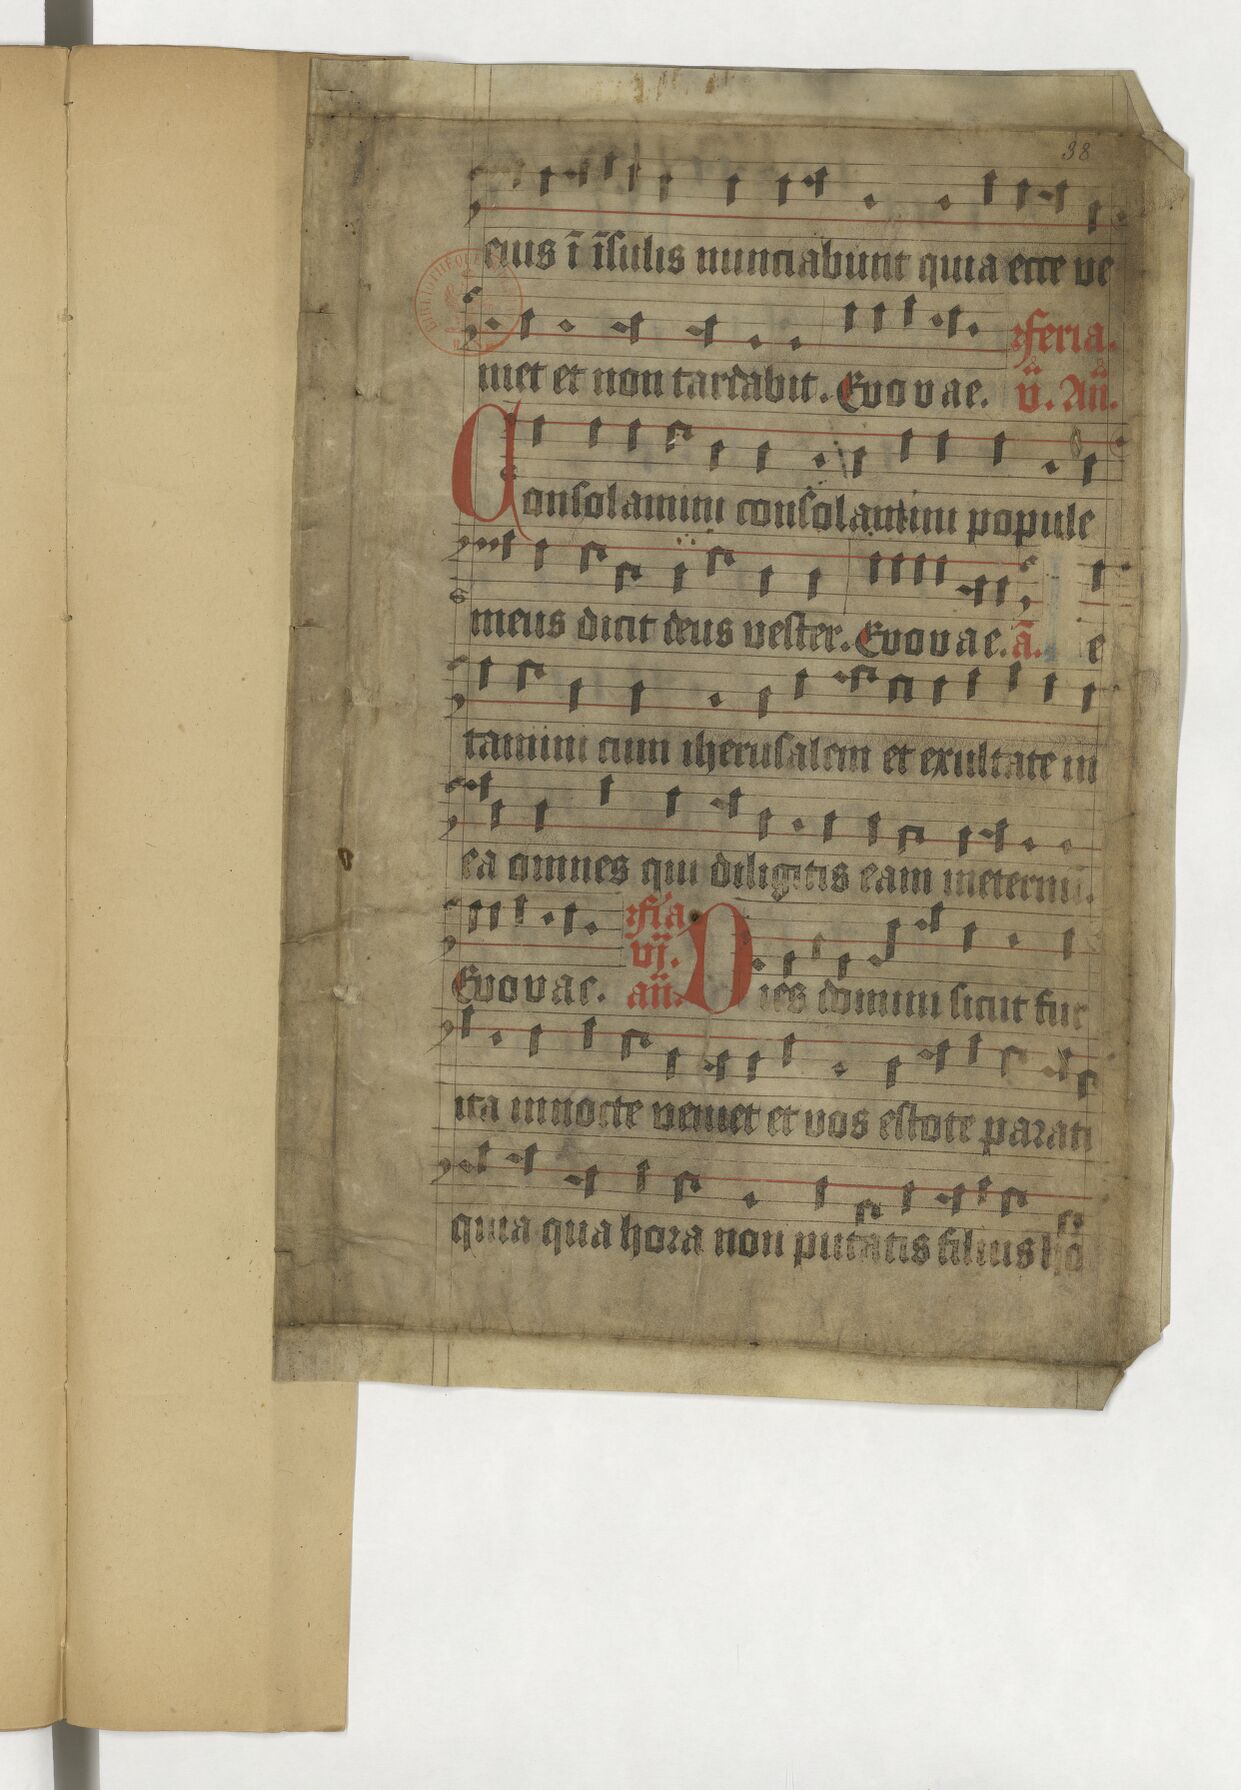 38
eius ī īsulis nunciabunt quia ecce ve
niet et non tardabit. Evovae. feria.
v. An̄.
Consolamini consolamini popule
meus dicit deus vester. Evovae. ā. e
tamini cum iherusalem et exultate in
ea omnes qui diligitis eam ineternū.
Evovae. fīa vj. an̄. Dies domini sicut fur
ita innocte veniet et vos estote parati
quia qua hora non putatis filius hō